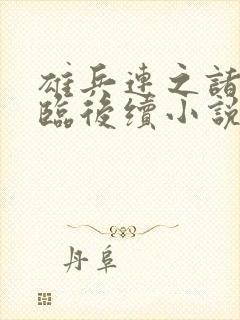 雄兵連之諸
臨後續小說
丹阜